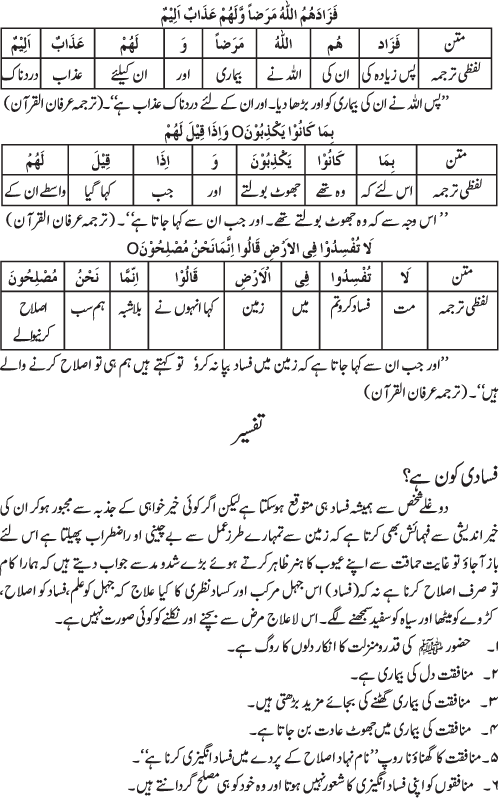 فَزَادَهُمُ اللّٰهُ مَرَضاً وَّلَهُمْ عَذَابٌ اَلِيْمٌ
متن فَزَادَ هُم اللّٰهُ مَرَضاً وَ لَهُمْ عَذَابٌ اَلِيْمٌ
لفظی ترجمہ پس زیادہ کی ان کی اللہ نے بیماری اور ان کیلئے عذاب دردناک
’’پس اللہ نے ان کی بیماری کو اور بڑھا دیا۔ اور ان کے لئے دردناک عذاب ہے‘‘۔ (ترجمہ عرفان القرآن)
بِمَا كَانُوْا يَكْذِبُوْنَO وَاِذَا قِيْلَ لَهُمْ
متن بِمَا كَانُوْا يَكْذِبُوْنَ وَ اِذَا قِيْلَ لَهُمْ
لفظی ترجمہ اس لئے کہ وہ تھے جھوٹ بولتے اور جب کہا گیا واسطے ان کے
’’اس وجہ سے کہ وہ جھوٹ بولتے تھے۔ اور جب ان سے کہا جاتا ہے‘‘۔ (ترجمہ عرفان القرآن)
لَا تُفْسِدُوْا فِى الْاَرْضِ قَالُوْا اِنَّمَا نَحْنُ مُصْلِحُوْنَO
متن لَا تُفْسِدُوا فِى الْاَرْضِ قَالُوْا اِنَّمَا نَحْنُ مُصْلِحُونَ
لفظی ترجمہ مت فساد کرو تم میں زمین کہا انہوں نے بلاشبہ ہم سب اصلاح
کرنیوالے
’’اور جب ان سے کہا جاتا ہے کہ زمین میں فساد بپا نہ کرو‘ تو کہتے ہیں ہم ہی تو اصلاح کرنے والے
ہیں‘‘۔ (ترجمہ عرفان القرآن)
تفسیر
فسادی کون ہے؟
دوغلے شخص سے ہمیشہ فساد ہی متوقع ہوسکتا ہے لیکن اگر کوئی خیرخواہی کے جذبہ سے مجبور ہوکر ان کی
خیر اندیشی سے فہمائش بھی کرتا ہے کہ زمین سے تمہارے طرز عمل سے بے چینی او راضطراب پھیلتا ہے اس لئے
باز آجاؤ تو غایت حماقت سے اپنے عیوب کا ہنر ظاہر کرتے ہوئے بڑے شدو مد سے جواب دیتے ہیں کہ ہمارا کام
تو صرف اصلاح کرنا ہے نہ کہ (فساد) اس جہل مرکب اور فساد نظری کا کیا علاج کہ جہل کو علم، فساد کو اصلاح،
کڑوے کو میٹھا اور سیاہ کو سفید سمجھنے لگے۔ اس لاعلاج مرض سے بچنے اور نکلنے کو کوئی صورت نہیں ہے۔
۱۔ حضور ﷺ کی قدرو منزلت کا انکار دلوں کا روگ ہے۔
۲۔ منافقت دل کی بیماری ہے۔
۳۔ منافقت کی بیماری گھٹنے کی بجائے مزید بڑھتی ہیں۔
۴۔ منافقت کی بیماری میں جھوٹ عادت بن جاتا ہے۔
۵۔ منافقت کا گھناؤنا روپ ’’نام نہاد اصلاح کے پردے میں فساد انگیزی کرنا ہے‘‘۔
۶۔ منافقوں کو اپنی فساد انگیزی کا شعور نہیں ہوتا اور وہ خود کو ہی مصلح گردانتے ہیں۔